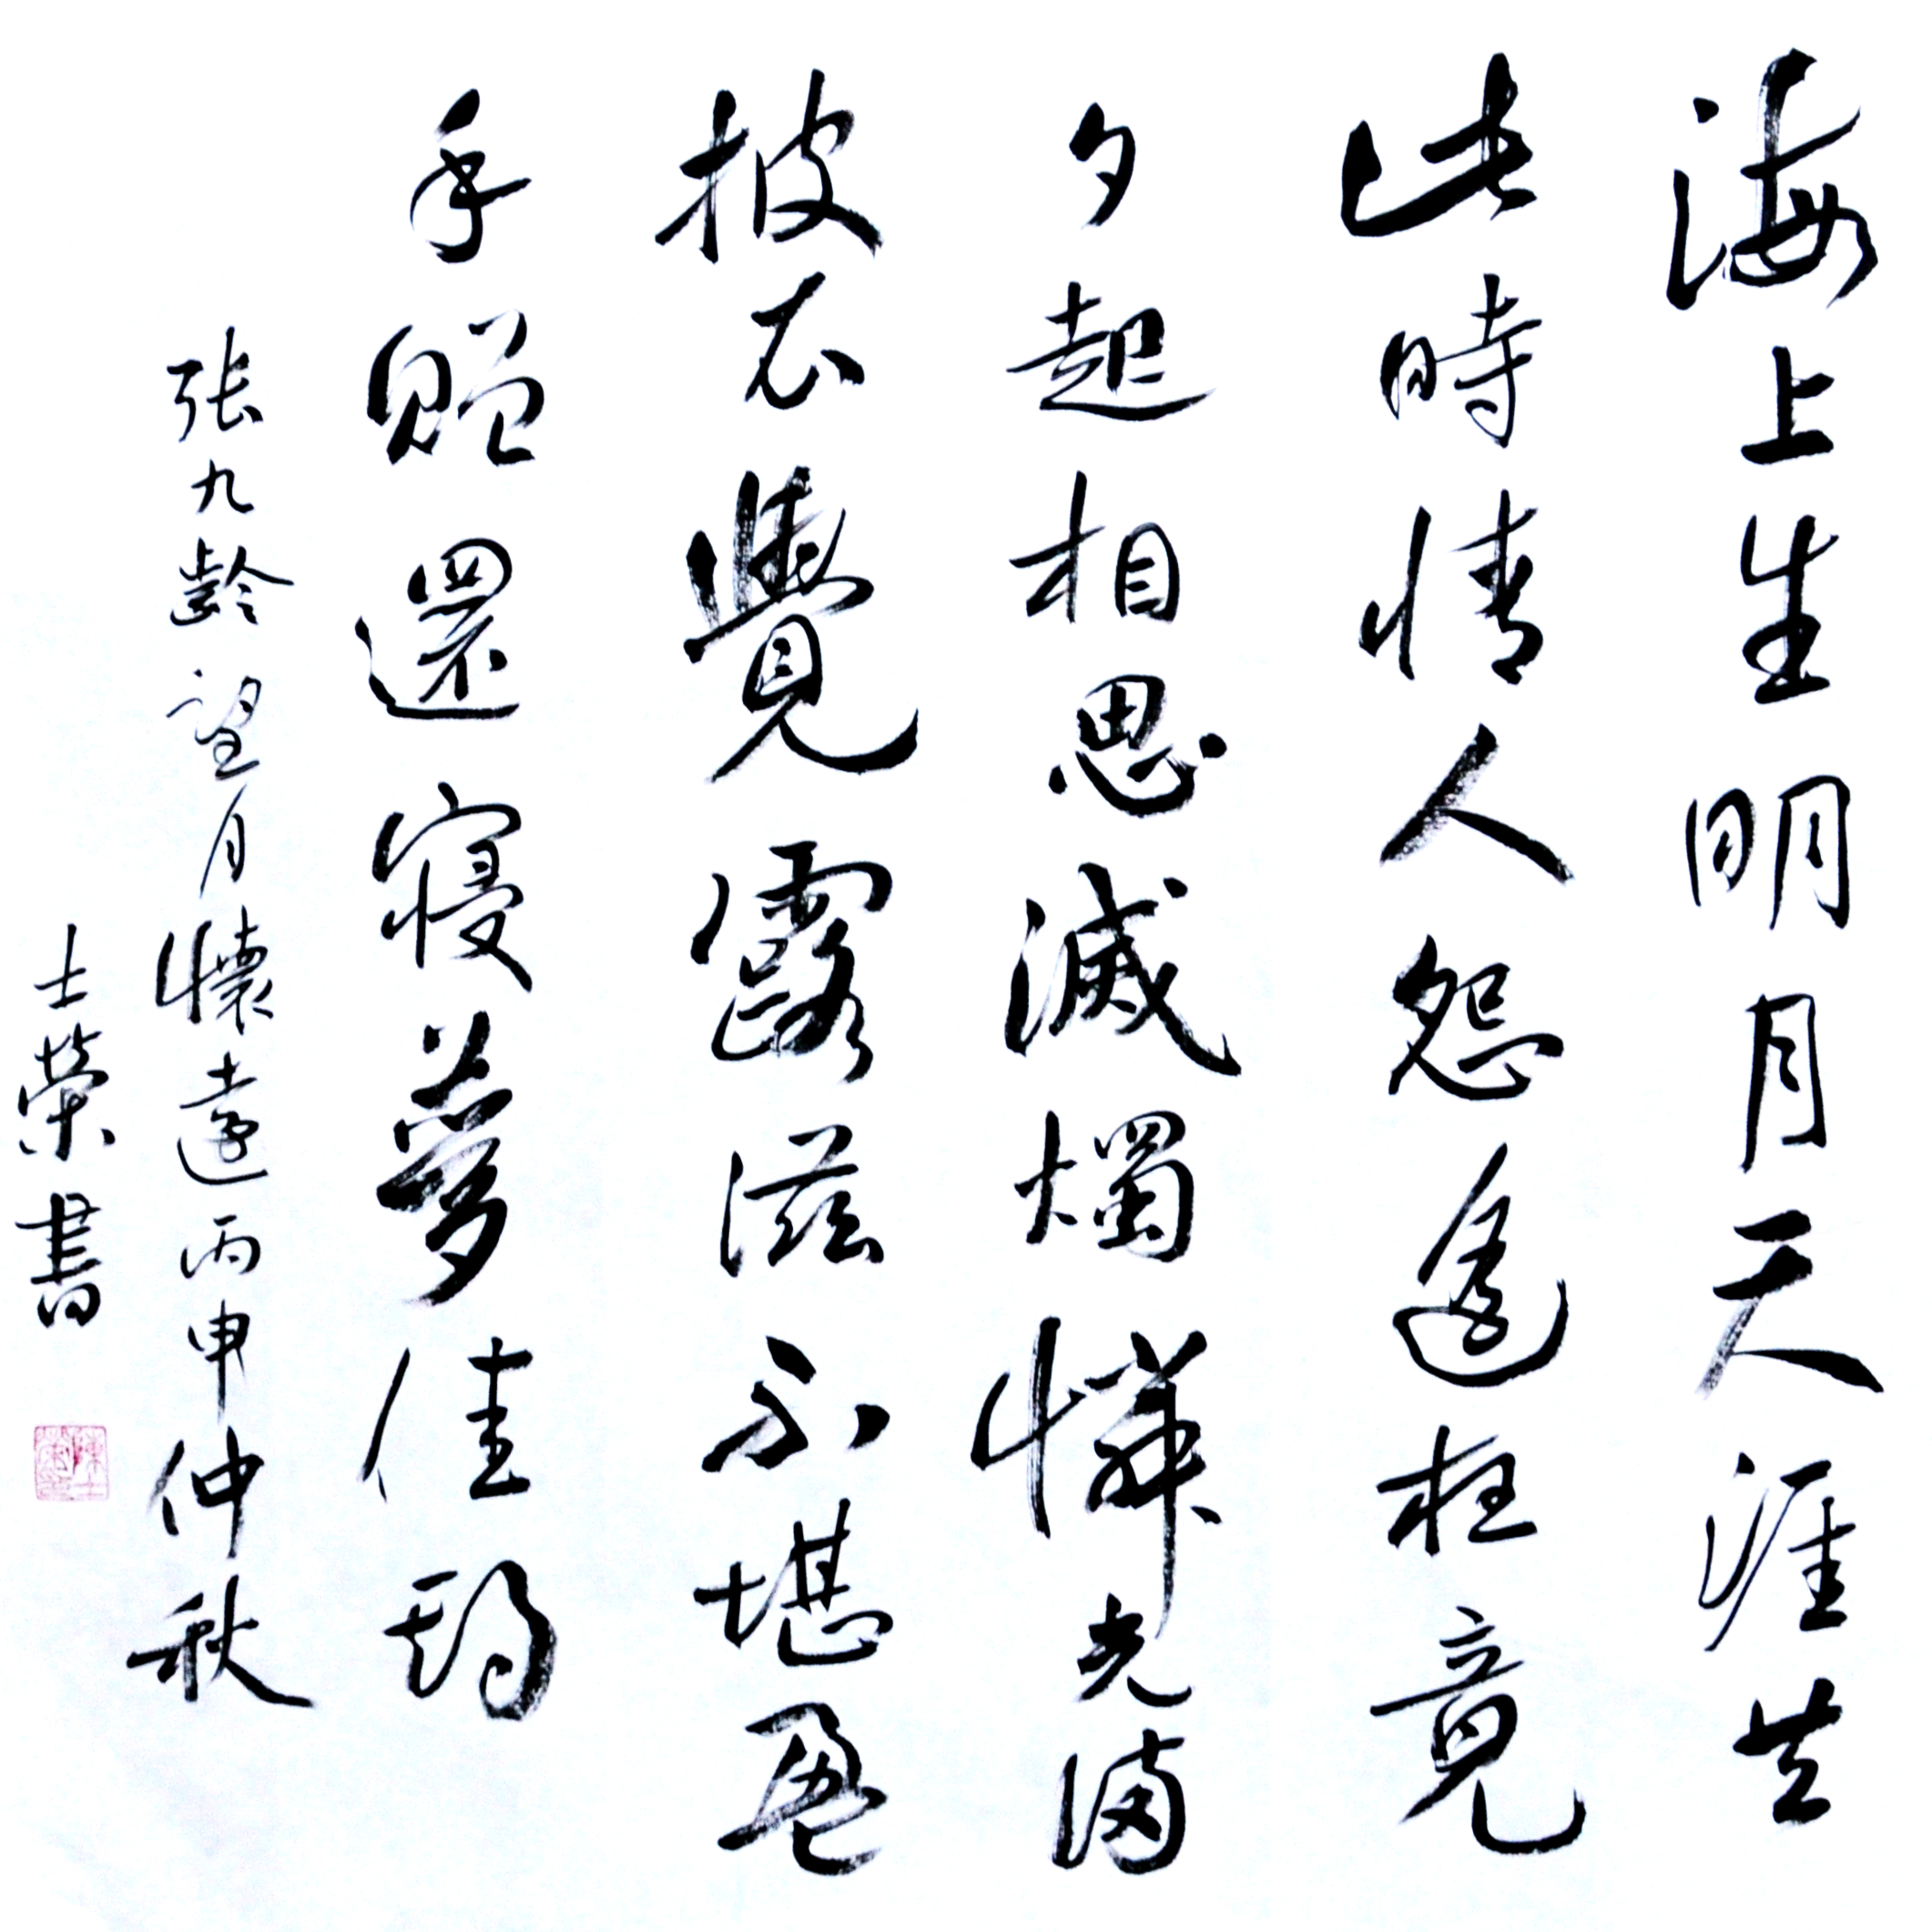 海上生明月天涯共
此時情人怨遙枉竟
夕起相思滅燭憐光滿
披衣覺露滋不堪盈
手贈還寢夢佳期
張九齡望月懷遠丙申仲秋
士榮書